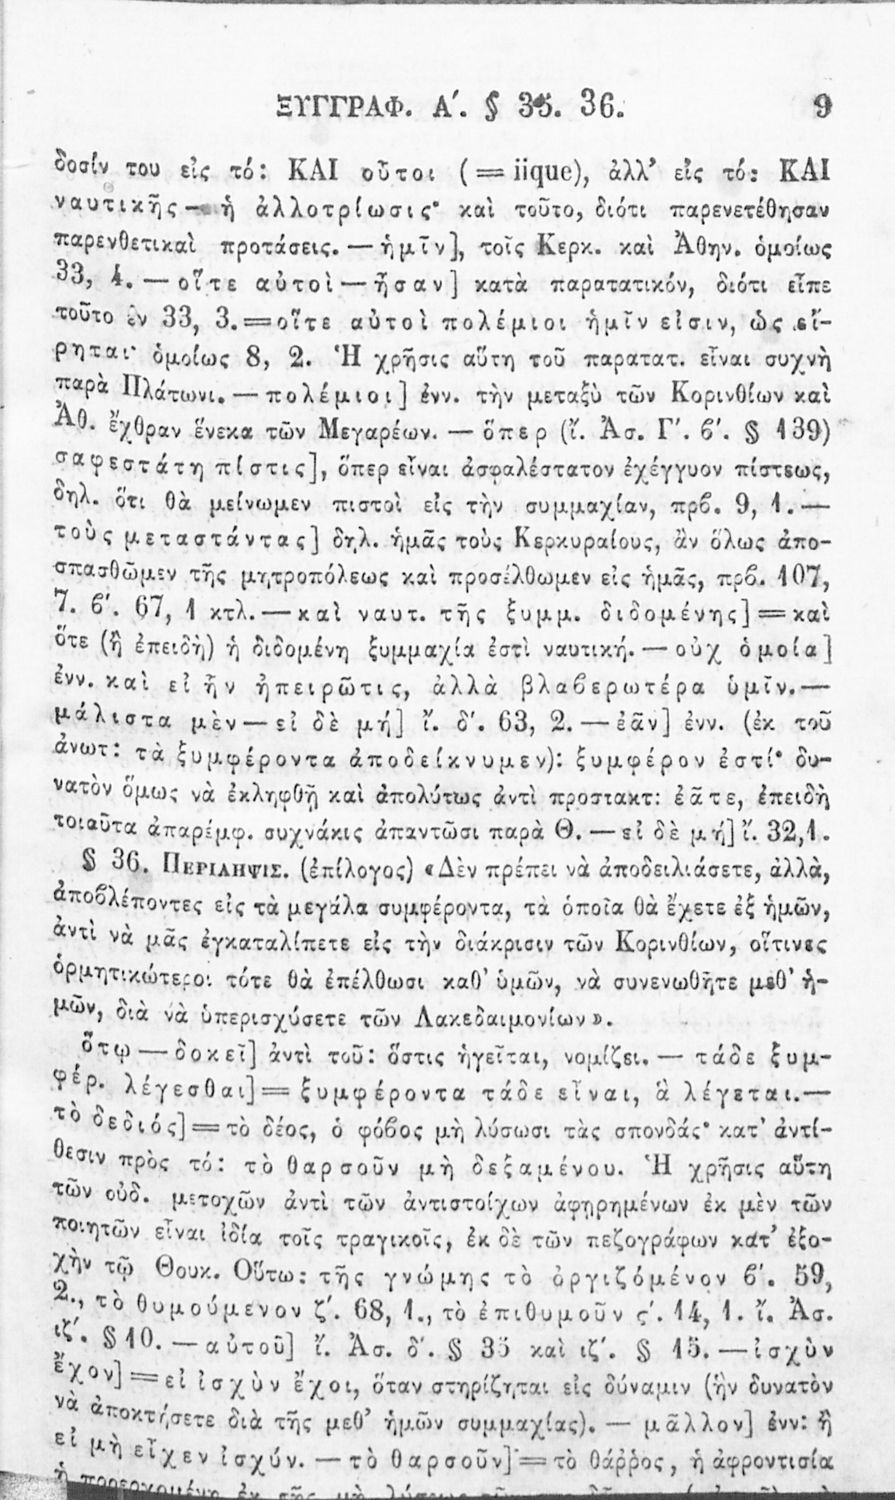 ΞΥΓΓΡΑΦ. Α΄. § 35. 36. 9
δοσίν του εἰς τό: ΚΑΙ οὗτοι (= iique), ἀλλ’ εἰς τό: ΚΑΙ
ναυτικῆς — ἡ ἀλλοτρίωσις· καὶ τοῦτο, διότι παρενετέθησαν
παρενθετικαὶ προτάσεις. — ἡμῖν], τοῖς Κερκ. καὶ Ἀθην. ὁμοίως
33, 4. — οἵτε αὐτοὶ — ἦσαν] κατὰ παρατατικόν, διότι εἶπε
τοῦτο ἐν 33, 3. = οἵτε αὐτοὶ πολέμιοι ἡμῖν εἰσιν, ὡς εἴ-
ρηται· ὁμοίως 8, 2. Ἡ χρῆσις αὕτη τοῦ παρατατ. εἶναι συχνὴ
παρὰ Πλάτωνι. — πολέμιοι] ἐνν. τὴν μεταξὺ τῶν Κορινθίων καὶ
Ἀθ. ἔχθραν ἕνεκα τῶν Μεγαρέων. — ὅπερ (ἴ. Ἀσ. Γ΄. ϐ΄. § 139)
σαφεστάτη πίστις], ὅπερ εἶναι ἀσφαλέστατον ἐχέγγυον πίστεως,
δηλ. ὅτι θὰ μείνωμεν πιστοὶ εἰς τὴν συμμαχίαν, πρϐ. 9, 1. —
τοὺς μεταστάντας] δηλ. ἡμᾶς τοὺς Κερκυραίους, ἂν ὅλως ἀπο-
σπασθῶμεν τῆς μητροπόλεως καὶ προσέλθωμεν εἰς ἡμᾶς, πρϐ. 107,
7. ϐ΄. 67, 1 κτλ. — καὶ ναυτ. τῆς ξυμμ. διδομένης] = καὶ
ὅτε (ἢ ἐπειδὴ) ἡ διδομένη ξυμμαχία ἐστὶ ναυτική. — οὐχ ὁμοία]
ἐνν. καὶ εἰ ἦν ἠπειρῶτις, ἀλλὰ βλαϐερωτέρα ὑμῖν. —
μάλιστα μὲν — εἰ δὲ μή] ἴ. δ΄. 63, 2. — ἐᾶν] ἐνν. (ἐκ τοῦ
ἀνωτ: τὰ ξυμφέροντα ἀποδείκνυμεν): ξυμφέρον ἐστί· δυ-
νατὸν ὅμως νὰ ἐκληφθῇ καὶ ἀπολύτως ἀντὶ προστακτ: ἐᾶτε, ἐπειδὴ
τοιαῦτα ἀπαρέμφ. συχνάκις ἀπαντῶσι παρὰ Θ. — εἰ δὲ μή] ἴ. 32,1.
§ 36. ΠΕΡΙΛΗΨΙΣ. (ἐπίλογος) «Δὲν πρέπει νὰ ἀποδειλιάσετε, ἀλλὰ,
ἀποϐλέποντες εἰς τὰ μεγάλα συμφέροντα, τὰ ὁποῖα θὰ ἔχετε ἐξ ἡμῶν,
ἀντὶ νὰ μᾶς ἐγκαταλίπετε εἰς τὴν διάκρισιν τῶν Κορινθίων, οἵτινες
ὁρμητικώτεροι τότε θὰ ἐπέλθωσι καθ’ ὑμῶν, νὰ συνενωθῆτε μεθ’ ἡ-
μῶν, διὰ νὰ ὑπερισχύσετε τῶν Λακεδαιμονίων».
ὅτῳ — δοκεῖ] ἀντὶ τοῦ: ὅστις ἡγεῖται, νομίζει. — τάδε ξυμ-
φέρ. λέγεσθαι] = ξυμφέροντα τάδε εἶναι, ἃ λέγεται. —
τὸ δεδιός] = τὸ δέος, ὁ φόϐος μὴ λύσωσι τὰς σπονδάς· κατ’ ἀντί-
θεσιν πρὸς τό: τὸ θαρσοῦν μὴ δεξαμένου. Ἡ χρῆσις αὕτη
τῶν οὐδ. μετοχῶν ἀντὶ τῶν ἀντιστοίχων ἀφῃρημένων ἐκ μὲν τῶν
ποιητῶν εἶναι ἰδία τοῖς τραγικοῖς, ἐκ δὲ τῶν πεζογράφων κατ’ ἐξο-
χὴν τῷ Θουκ. Οὕτω: τῆς γνώμης τὸ ὀργιζόμενον ϐ΄. 59,
2., τὸ θυμούμενον ζ΄. 68, 1., τὸ ἐπιθυμοῦν ς΄. 14, 1. ἴ. Ἀσ.
ιζ΄. § 10. — αὐτοῦ] ἴ. Ἀσ. δ΄. § 35 καὶ ιζ΄. § 15. — ἰσχὺν
ἔχον] = εἰ ἰσχὺν ἔχοι, ὅταν στηρίζηται εἰς δύναμιν (ἣν δυνατὸν
νὰ ἀποκτήσετε διὰ τῆς μεθ’ ἡμῶν συμμαχίας). — μᾶλλον] ἐνν: ἢ
εἰ μὴ εἶχεν ἰσχύν. — τὸ θαρσοῦν] = τὸ θάῤῥος, ἡ ἀφροντισία
ἡ προερχομένη ἐκ τῆς μὴ